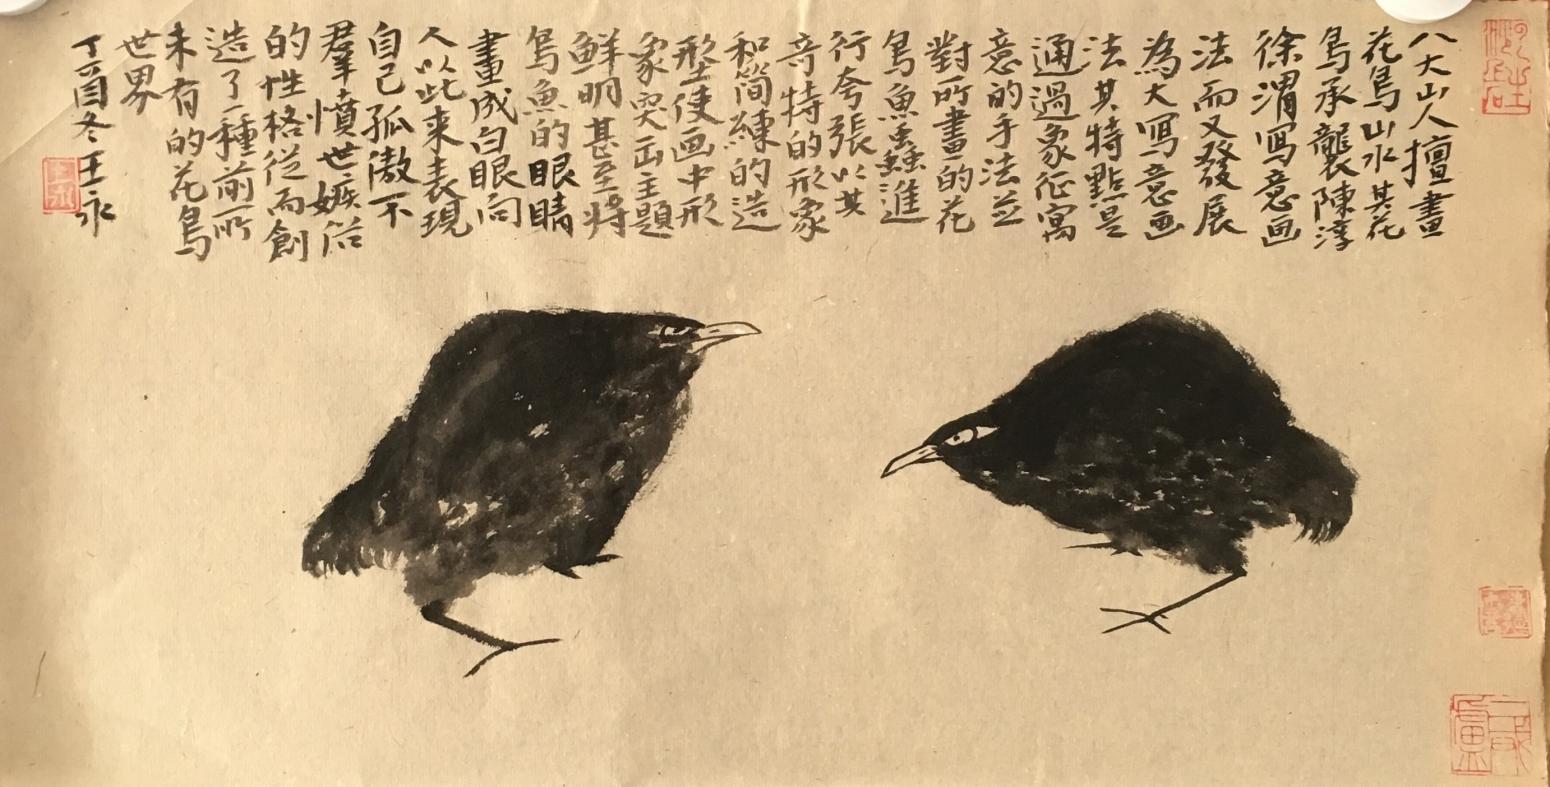 八大山人擅畫
花鳥山水其花
鳥承襲陳淳
徐渭寫意画
法而又發展
為大寫意画
法其特點是
通過象征寓
意的手法並
對所畫的花
鳥魚蟲進
行夸張以其
奇特的形象
和簡練的造
型使画中形
象突出主題
鮮明甚至將
鳥魚的眼睛
畫成白眼向
人以此来表現
自己孤傲不
羣憤世嫉俗
的性格從而創
造了一種前所
未有的花鳥
世界
丁酉冬王永
王永